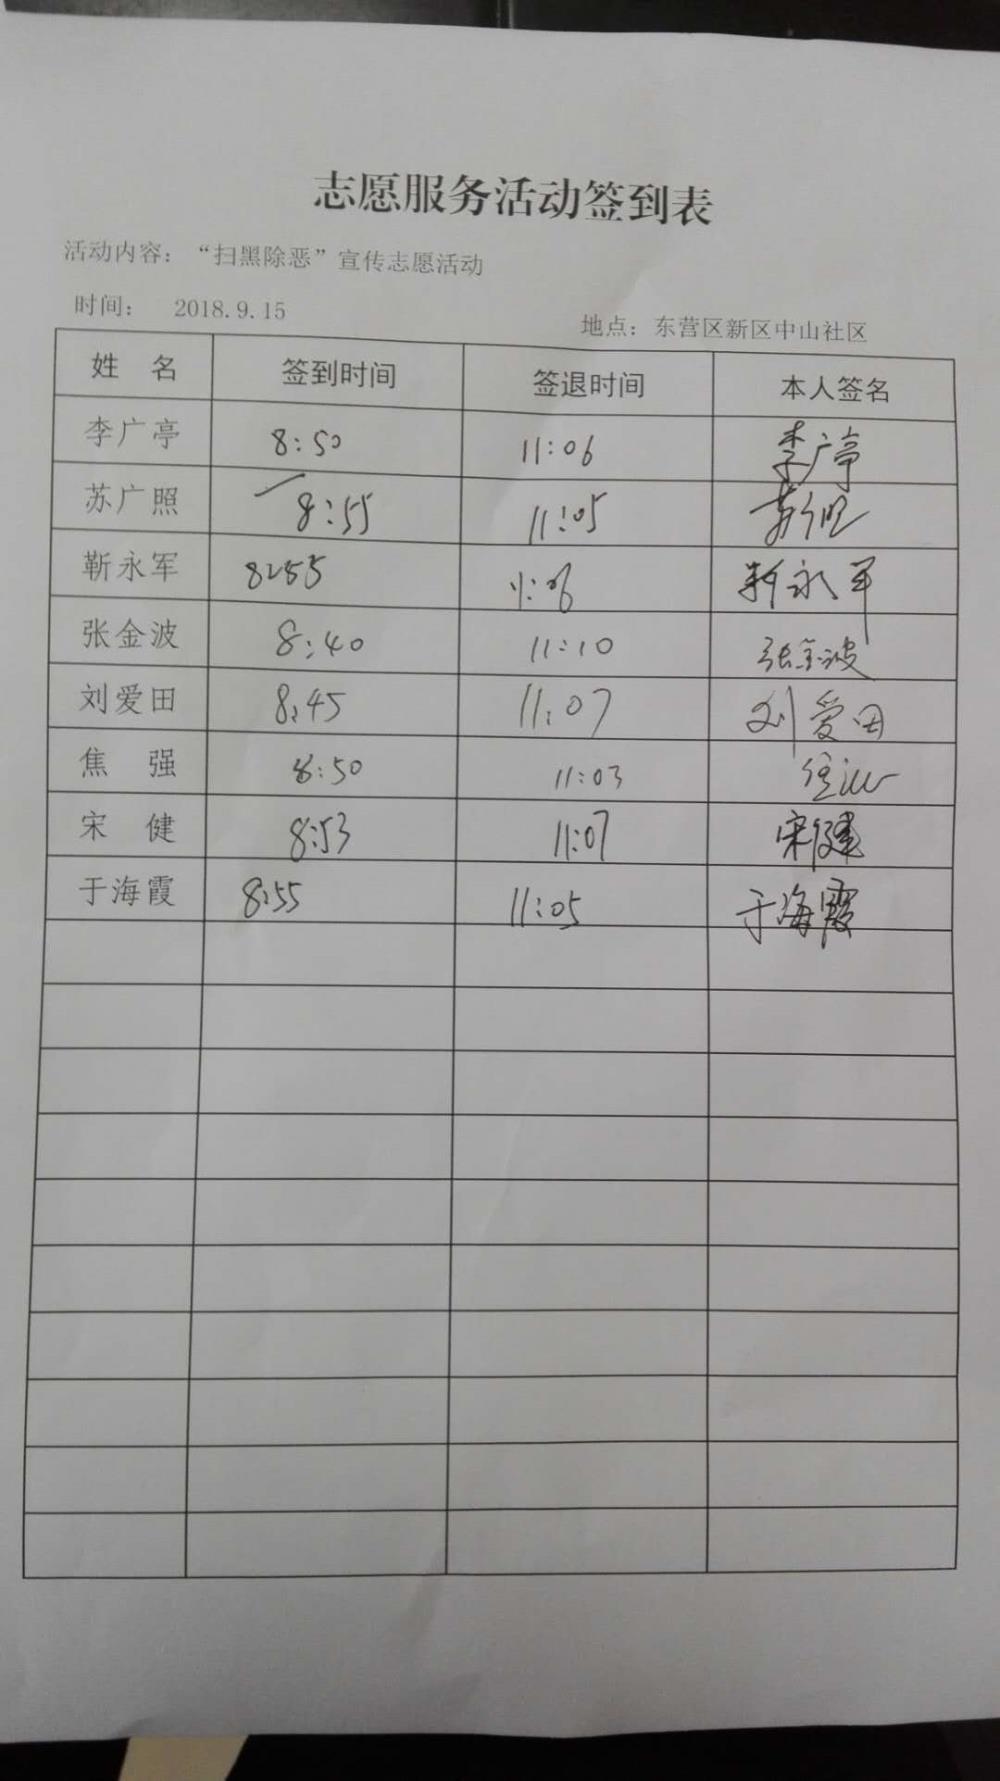 志愿服务活动签到表
活动内容：“扫黑除恶”宣传志愿活动
时间： 2018.9.15 地点：东营区新区中山社区
姓 名 签到时间 签退时间 本人签名
李广亭 8:50 11:06 李广亭
苏广照 8:55 11:05
靳永军 8:55 11:06 靳永军
张金波 8:40 11:10 张金波
刘爱田 8:45 11:07 刘爱田
焦 强 8:50 11:03
宋 健 8:53 11:07 宋健
于海霞 8:55 11:05 于海霞